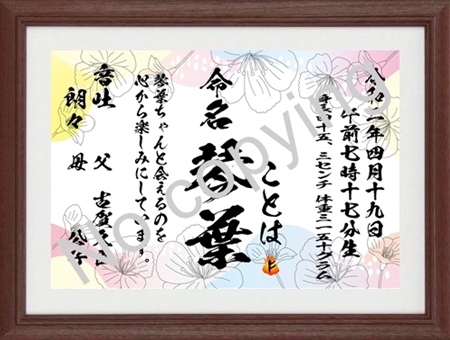 令和年四月十九日
午前七時十七分生
身長四十五、三センチ 体重三一五十グラム
ことは
命名 琴葉
琴葉ちゃんと会えるのを
心から楽しみにしています。
音吐
朗々
父 古賀
母
No copying